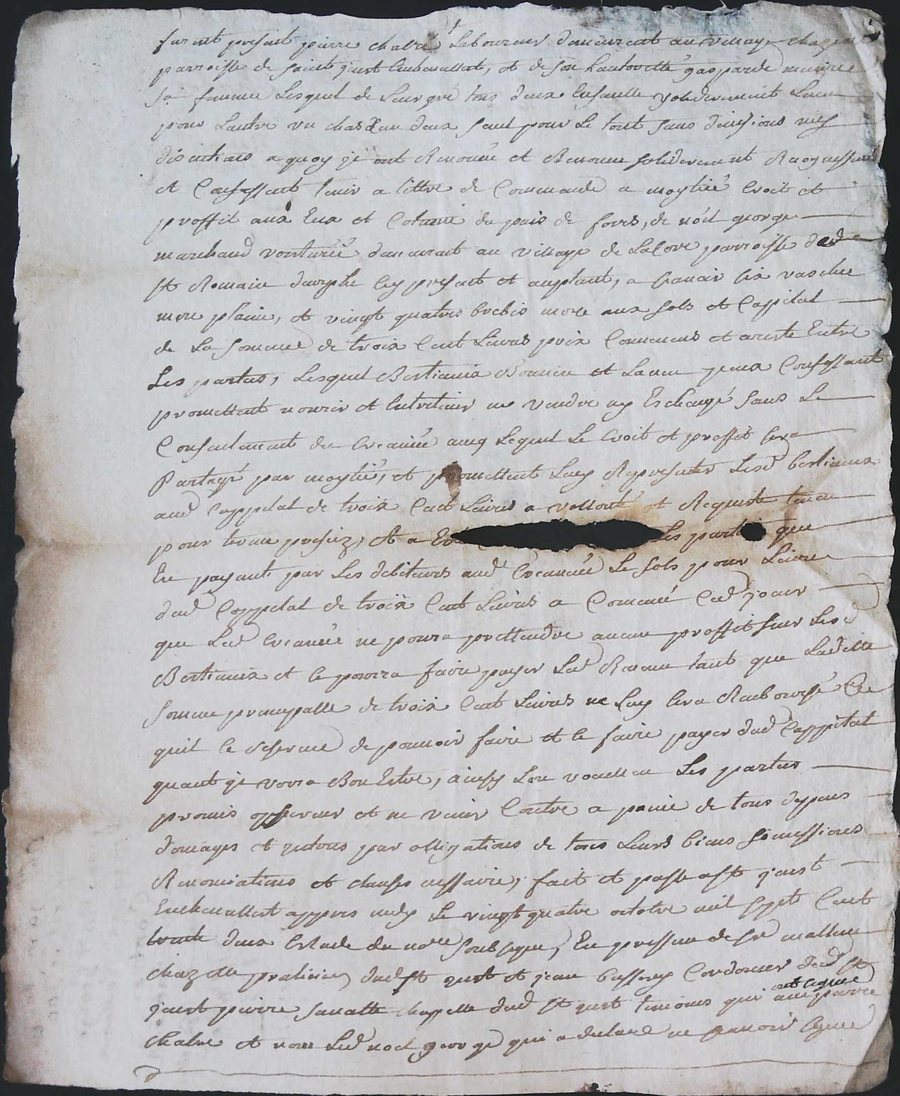 furent presant pierre chalve Laboureur demeurant au village
parroisse de saint just Enbauallat, et de son hautorité gasparde
sa femme Lesquel de Leur gré tous deux Ensemble solidairement Lun
pour Lautre un chascun deux seul pour le tout sans division ny
discution a quoy je ont Renoncé et Renonce solidairement
et Confessent tenir a tittre de Commande a moytié croit et
proffit aux Eux et Cotume du pais de fores, de noël george
marchand voiturié demeurant au village de Lacore parroisse dud
st Romain durphe icy presant et aceptant, a scavoir six vasches
mere plaine, et vingt quatres brebis mere aux sols et Cappital
de La somme de troix Cent Livres prix Convenus et areste Entre
Les parties, Lesquel Bestiaux Confessant
promettent nourir et Entretenir ne vendre ny Eschangé sans Le
Consentement du Creancié avec Lequel Le Croit et proffit sera
Partagé par moytié, et promettent Luy Representer Lesd bestiaux
aud Cappital de troix Cent Livres a vollonté et Requeste
pour tenu prefix, et a Les parties que
En payant par Les debiteurs aud Creancié Le sols pour Livre
dud Cappital de troix Cent Livres a Comencé Ced jour
que Led Creancié ne poura prettendre aucun proffit sur Lesd
Bestiaux et se poura faire payer Lad Revenu tant que Laditte
somme principalle de troix Cent Livres ne Luy sera Rembourcé Ce
quil se reserve de pouvoir faire et se faire payer dud Cappital
quant je voira Bon Estre, ainsy Lon voullu Les parties
promis observer et ne venir Contre a peine de tous depans
domages et par obligations de tous Leurs biens sommissions
Renonciations et clauses; fait et passe a st just
Enbauallat appres midy Le vingt quatre octobre mil sept Cent
trente deux Estude du nore soubsigné, En presance de sr
chazelle praticien dud st just et jean Cordonier dud st
just pierre chapelle dud st just temoins qui ont signé avec pierre
chalve et non Led noël george qui a declaré ne scavoir signé